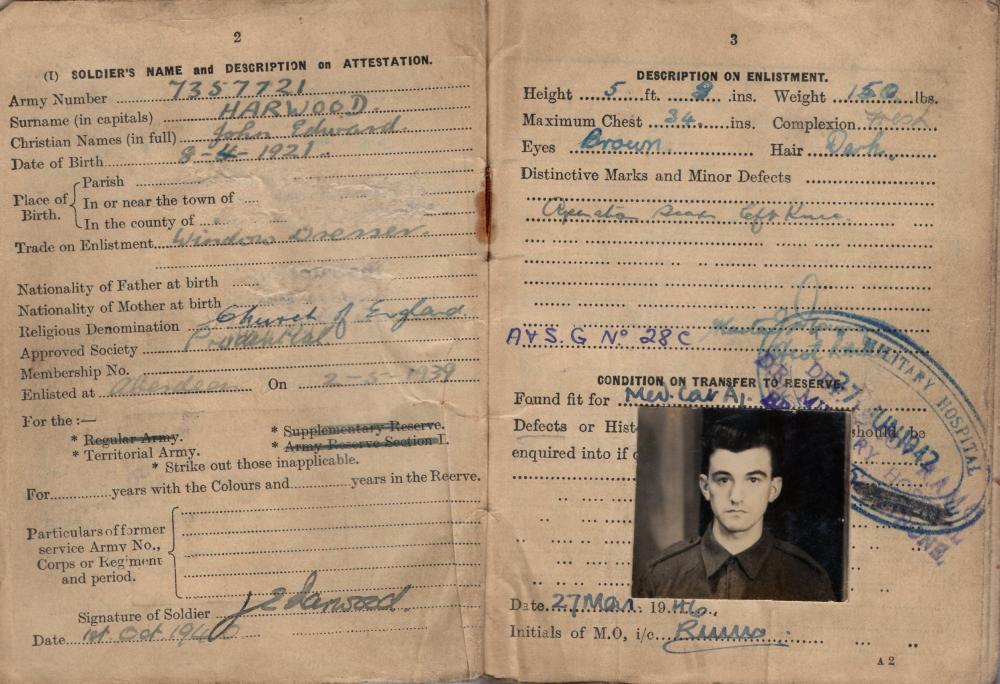 2
(I) SOLDIER'S NAME and DESCRIPTION on ATTESTATION.
Army Number 7357721
Surname (in capitals) HARWOOD
Christian Names (in full) John Edward
Date of Birth 8-4-1921.
Place of Birth. { Parish
In or near the town of
In the county of
Trade on Enlistment Window Dresser.
Nationality of Father at birth
Nationality of Mother at birth
Religious Denomination Church of England
Approved Society Prudential
Membership No.
Enlisted at Aberdeen On 2-5-1939
For the :—
* Regular Army. * Supplementary Reserve.
* Territorial Army. * Army Reserve Section I.
* Strike out those inapplicable.
For years with the Colours and years in the Reerve.
Particulars of former service Army No., Corps or Regiment and period.
Signature of Soldier J E Harwood.
Date 1st Oct 1940
3
DESCRIPTION ON ENLISTMENT.
Height 5 ft. 8 ins. Weight 150 lbs.
Maximum Chest 34 ins. Complexion Fresh
Eyes Brown. Hair Dark.
Distinctive Marks and Minor Defects
Operation Scar Left Knee.
A & S. G Nº 28 C
MILITARY HOSPITAL
27 JUN 1942
CONDITION ON TRANSFER TO RESERVE.
Found fit for Med. Cat A1.
Defects or Hist should be
enquired into if
Date 27 Mar. 1946.
Initials of M.O, i/c
A 2